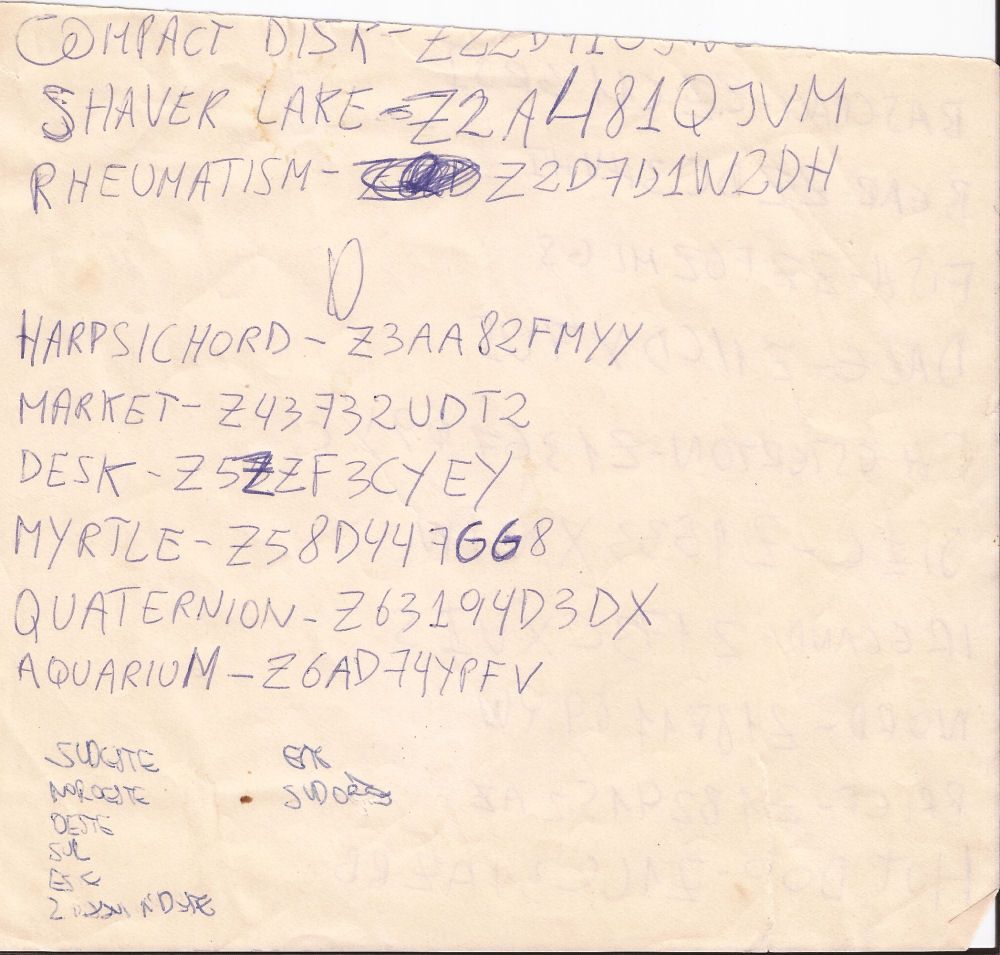 COMPACT DISK-
SHAVER LAKE-Z2A481QJVM
RHEUMATISM- Z2D7D1W2DH
D
HARPSICHORD-Z3AA82FMYY
MARKET-Z43732UDT2
DESK-Z5ZZF3CYEY
MYRTLE-Z58D447GG8
QUATERNION-Z63194D3DX
AQUARIUM-Z6AD74YPFV
SUDESTE
NOROESTE
OESTE
SUL